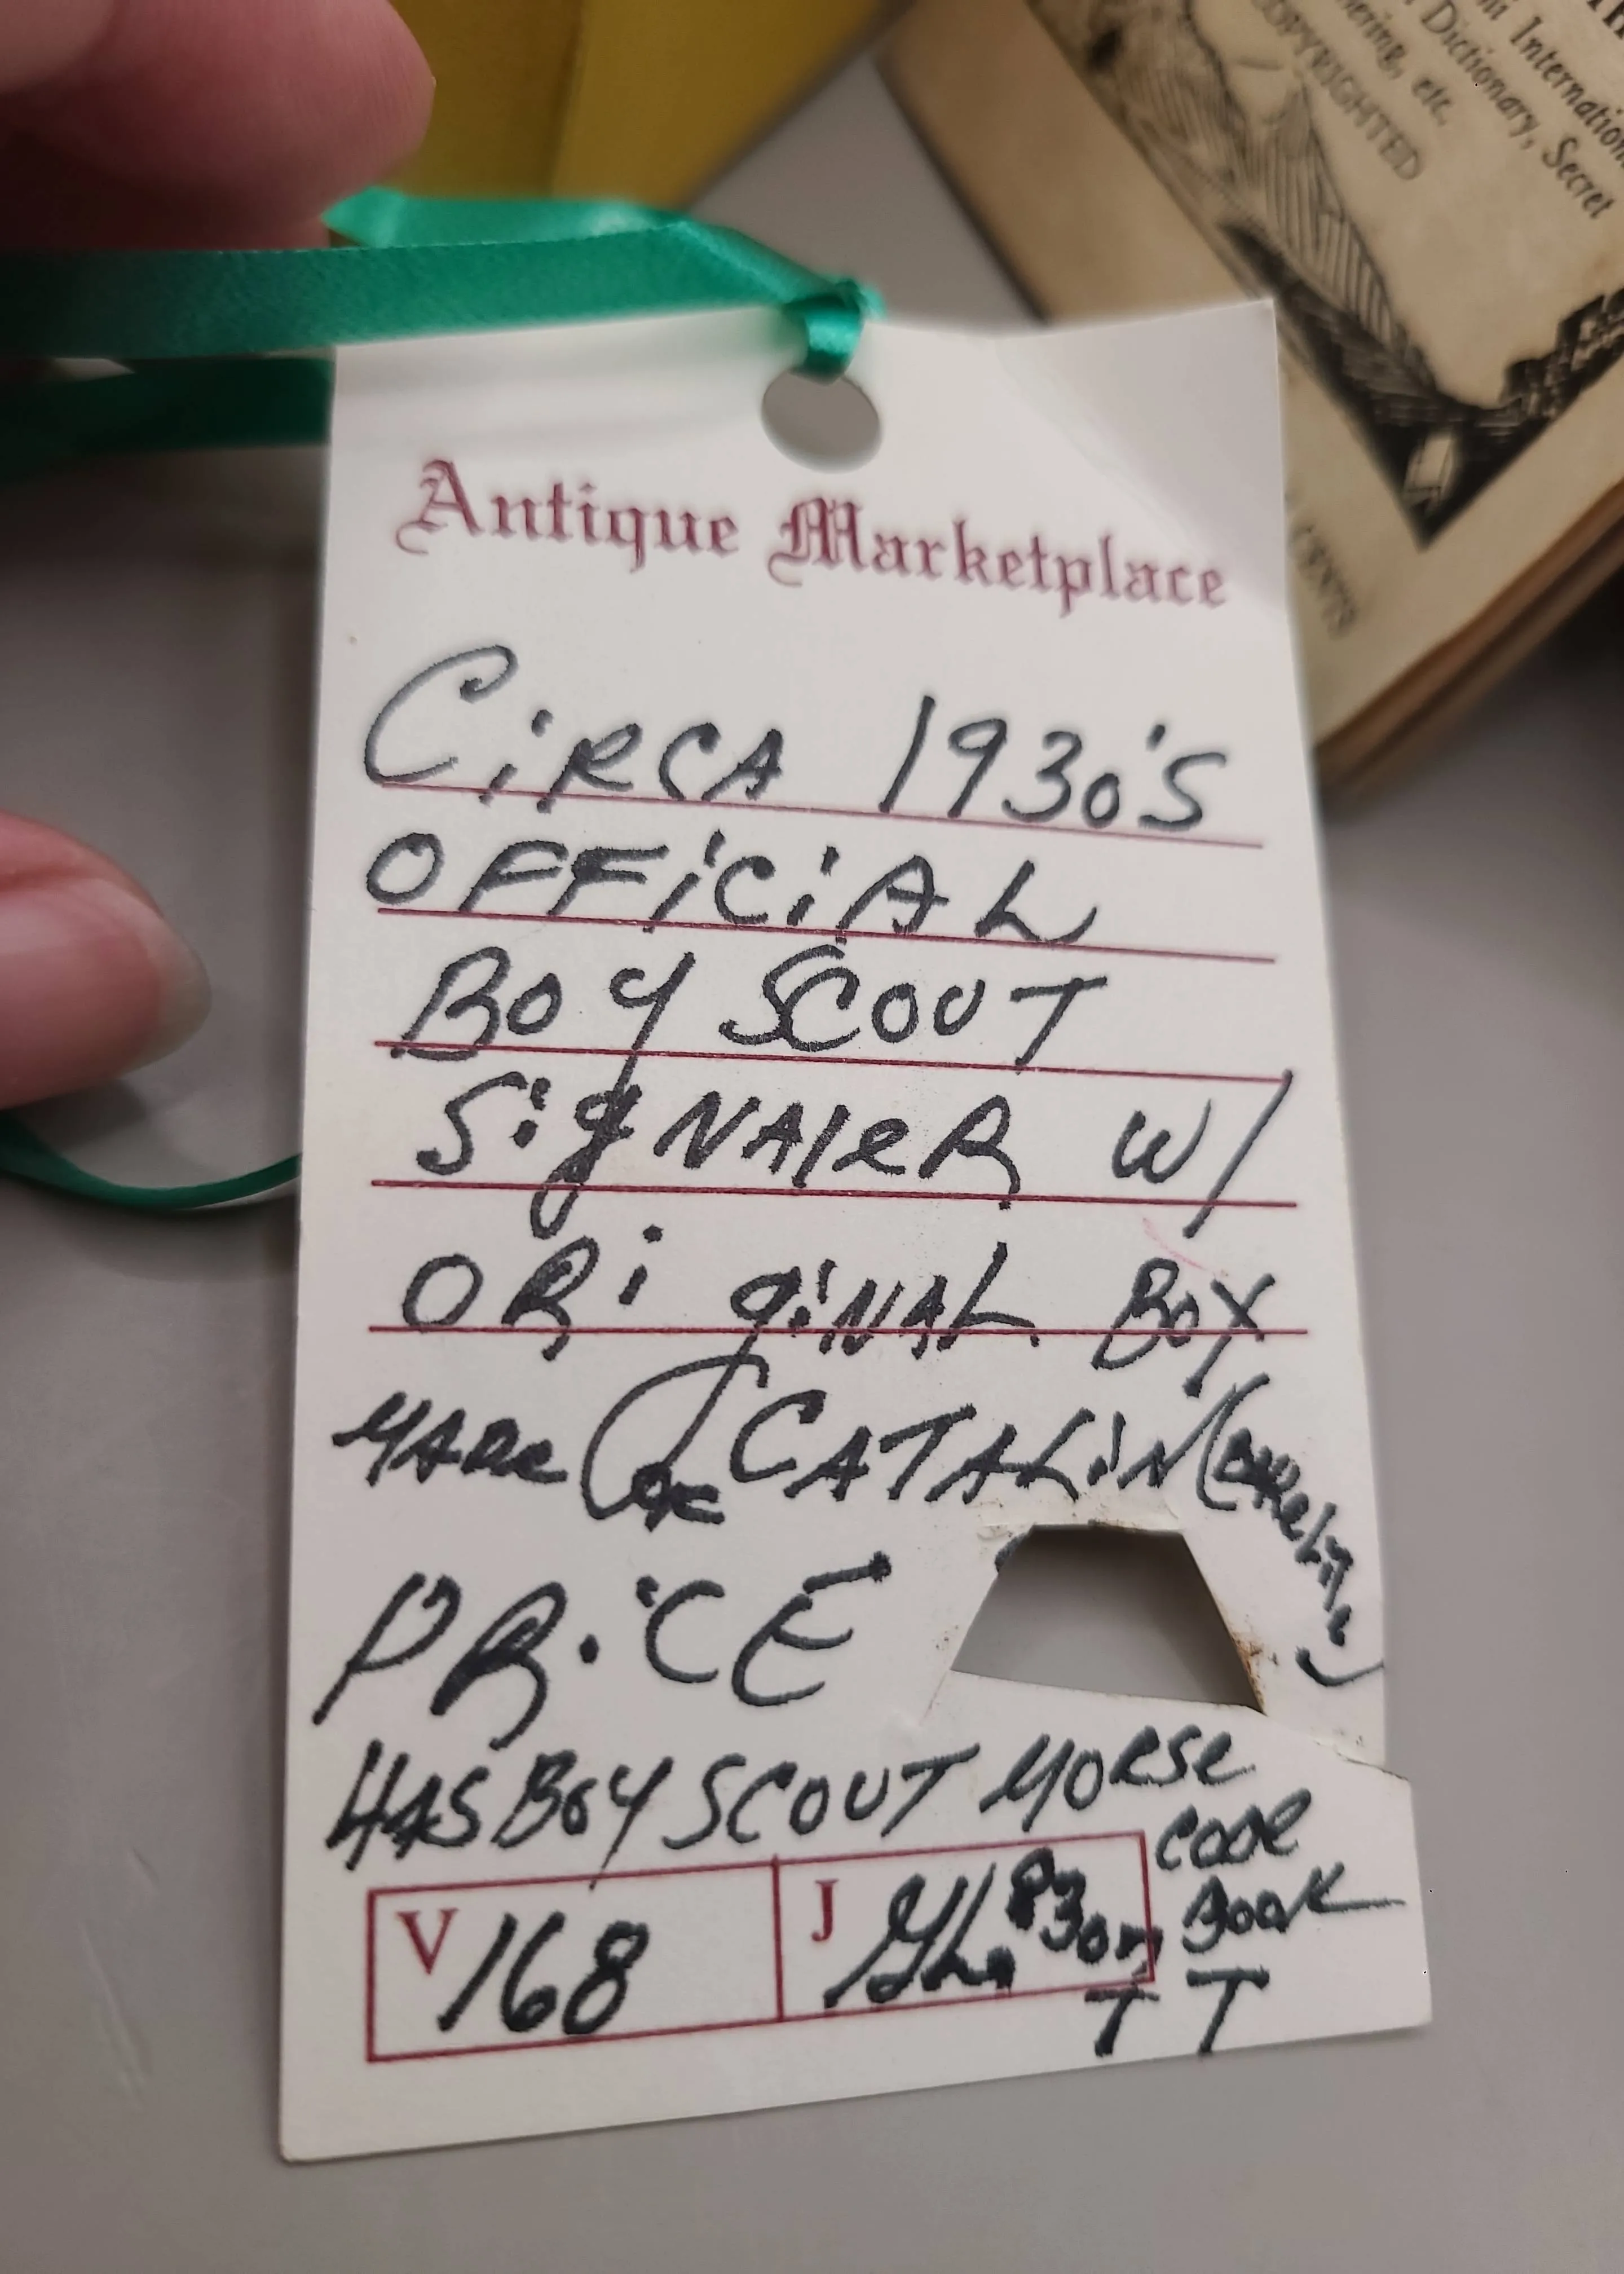 Antique Marketplace
CiRCA 1930'S
OFFiCiAL
BOY SCOUT
SigNAleR W/
ORiginAL BOX
MADe CATALiN
PRiCE
HAS BOY SCOUT MORSe
CODe
BOOK
V 168
J
T T
ni International
Dictionary, Secret
etc.
COPYRIGHTED
CENTS